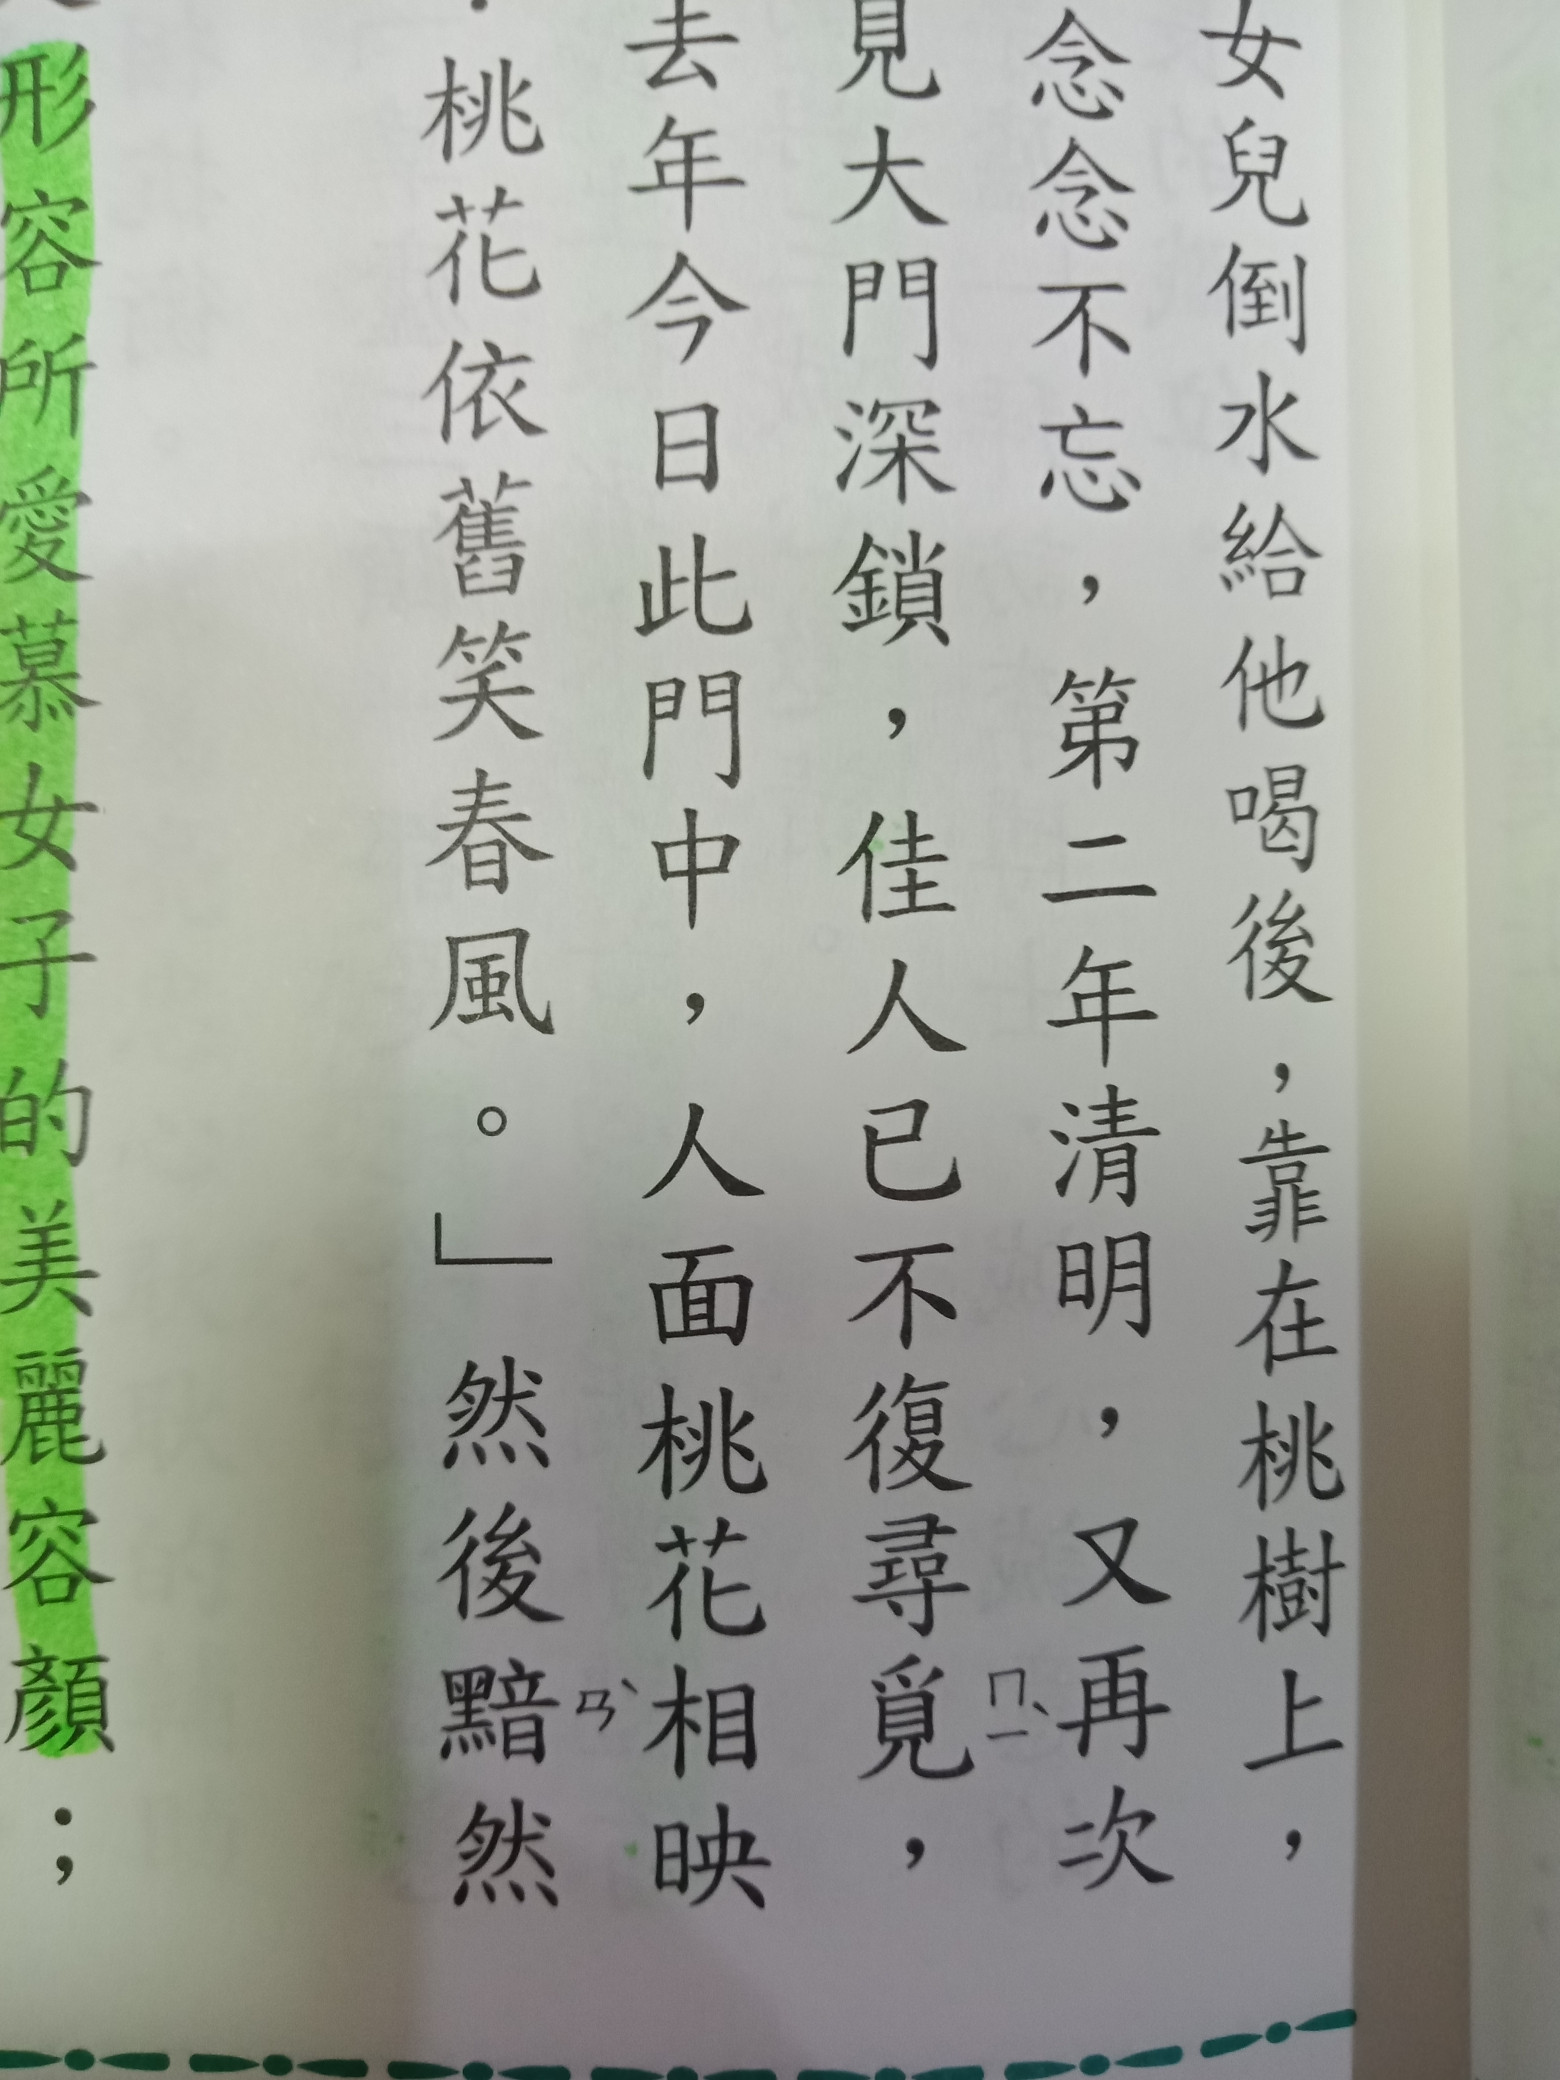 女兒倒水給他喝後，靠在桃樹上，
念念不忘，第二年清明，又再次
見大門深鎖，佳人已不復尋覓，
ㄇㄧˋ
去年今日此門中，人面桃花相映
桃花依舊笑春風。」然後黯然
ㄢˋ
形容所愛慕女子的美麗容顏；